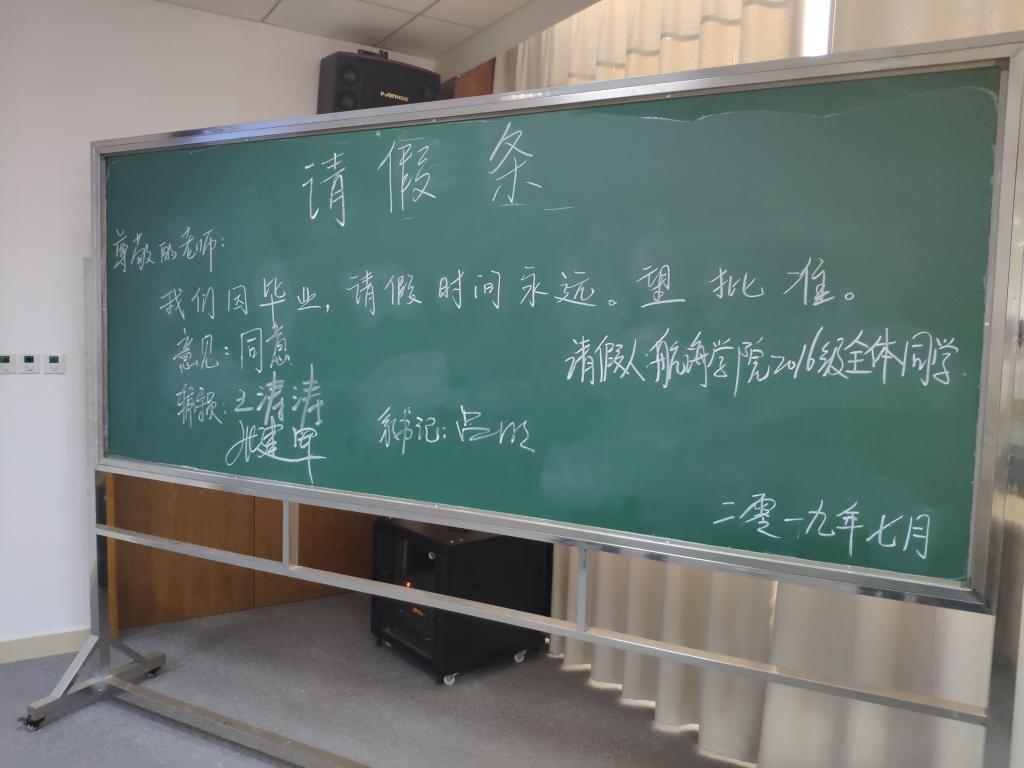 请假条
尊敬的老师:
我们因毕业,请假时间永远。望批准。
意见:同意
请假人航海学院2016级全体同学.
王涛涛
张建军
书记:吕明
二零一九年七月